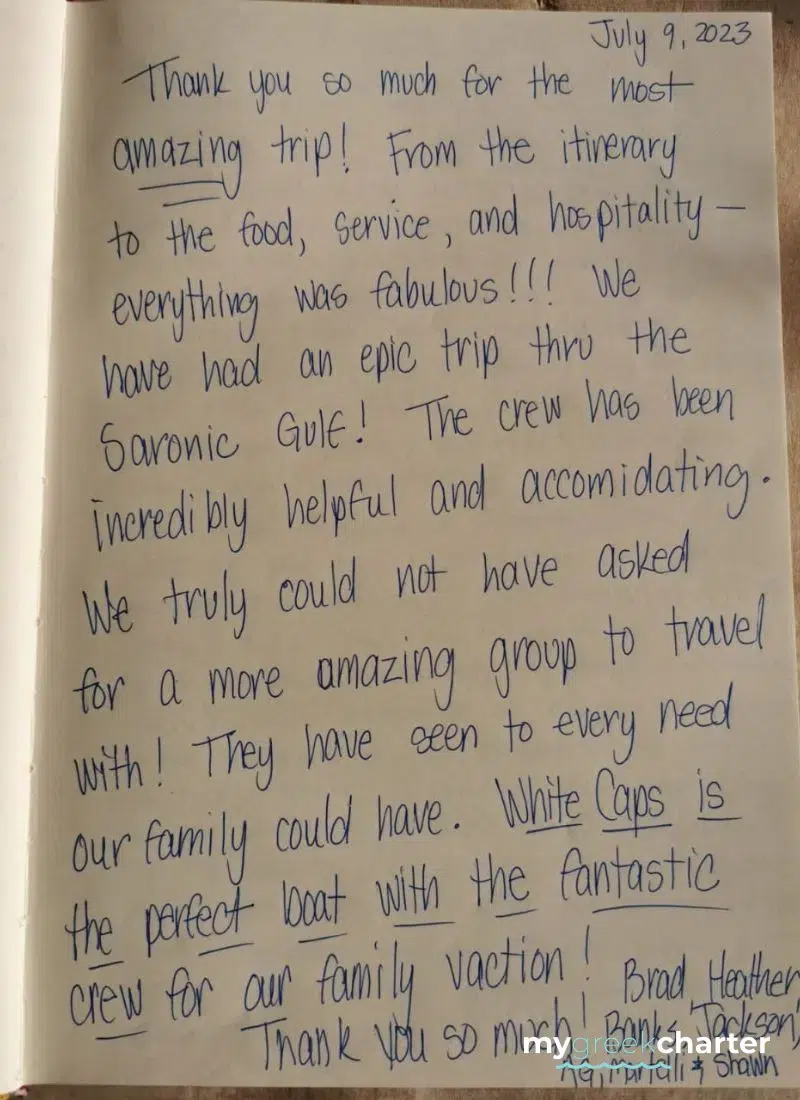 July 9, 2023
Thank you so much for the most
amazing trip! From the itinerary
to the food, service, and hospitality —
everything was fabulous!!! We
have had an epic trip thru the
Saronic Gulf! The crew has been
incredibly helpful and accomidating.
We truly could not have asked
for a more amazing group to travel
with! They have seen to every need
our family could have. White Caps is
the perfect boat with the fantastic
crew for our family vaction! Brad, Heather
Thank you so much! Banks, Jackson,
mygreekcharter
AG, & Shawn